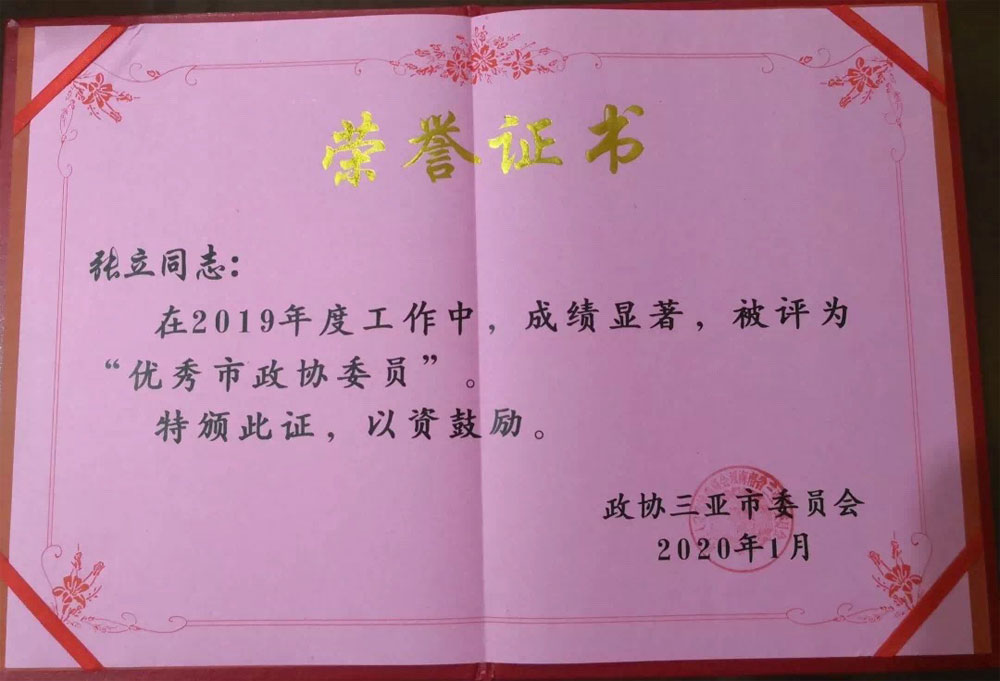 荣誉证书
张立同志：
在2019年度工作中，成绩显著，被评为
“优秀市政协委员”。
特颁此证，以资鼓励。
政协三亚市委员会
2020年1月